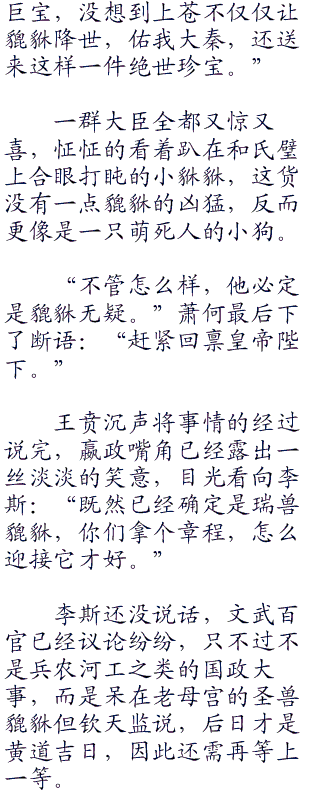 巨宝，没想到上苍不仅仅让
貔貅降世，佑我大秦，还送
来这样一件绝世珍宝。”
一群大臣全都又惊又
喜，怔怔的看着趴在和氏璧
上合眼打盹的小貅貅，这货
没有一点貔貅的凶猛，反而
更像是一只萌死人的小狗。
“不管怎么样，他必定
是貔貅无疑。”萧何最后下
了断语：“赶紧回禀皇帝陛
下。”
王贲沉声将事情的经过
说完，嬴政嘴角已经露出一
丝淡淡的笑意，目光看向李
斯：“既然已经确定是瑞兽
貔貅，你们拿个章程，怎么
迎接它才好。”
李斯还没说话，文武百
官已经议论纷纷，只不过不
是兵农河工之类的国政大
事，而是呆在老母宫的圣兽
貔貅但钦天监说，后日才是
黄道吉日，因此还需再等上
一等。